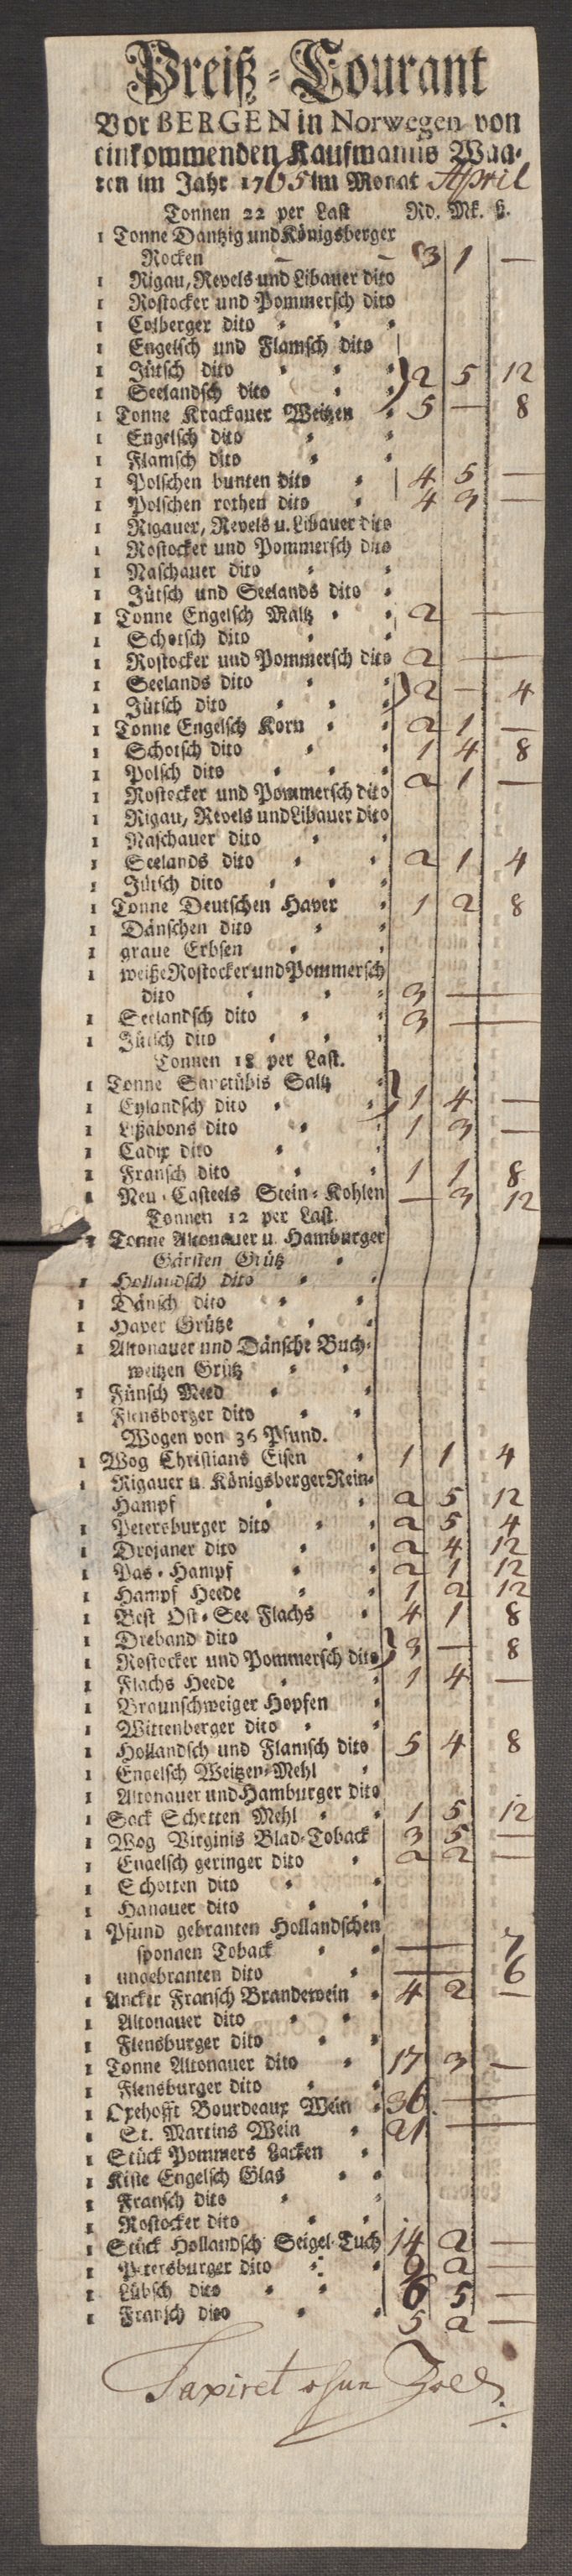 Preiß-Courant
Vor BERGEN in Norwegen von
einkommenden Kaufmanns Waa-
ren im Jahr 1765 im Monat April
Tonnen 22 per Last Rd. Mk. ß.
1 Tonne Dantzig und Königsberger
Rocken — — 3 1 —
1 Rigau, Revels und Libauer dito
1 Rostocker und Pommersch dito
1 Colberger dito
1 Engelsch und Flamsch dito
1 Jütsch dito } 2 5 12
1 Seelandsch dito
1 Tonne Krackauer Weitzen 5 — 8
1 Engelsch dito
1 Flamsch dito
1 Polschen bunten dito 4 5 —
1 Polschen rothen dito 4 3 —
1 Rigauer, Revels u. Libauer dito
1 Rostocker und Pommersch dito
1 Naschauer dito
1 Jütsch und Seelands dito
1 Tonne Engelsch Maltz 2 —
1 Schotsch dito
1 Rostocker und Pommersch dito 2 —
1 Seelands dito } 2 — 4
1 Jütsch dito
1 Tonne Engelsch Korn 2 1 —
1 Schotsch dito 1 4 8
1 Polsch dito 2 1 —
1 Rostocker und Pommersch dito
1 Rigau, Revels und Libauer dito
1 Naschauer dito
1 Seelands dito 2 1 4
1 Jütsch dito
1 Tonne Deutschen Haver 1 2 8
1 Dänschen dito
1 graue Erbsen
1 weiße Rostocker und Pommersch
dito 3 —
1 Seelandsch dito 3 —
1 Jütsch dito
Tonnen 18 per Last.
1 Tonne Sanctübis Saltz } 1 4 —
1 Eylandsch dito
1 Lißabons dito 1 3 —
1 Cadix dito
1 Fransch dito 1 1 8
1 Neu-Casteels Stein-Kohlen — 3 12
Tonnen 12 per Last.
1 Tonne Altonauer u. Hamburger
Gärsten Grütz
1 Hollandsch dito
1 Dänsch dito
1 Haver Grütze
1 Altonauer und Dänsche Buch-
weitzen Grütz
1 Fünsch Meed
1 Flensborger dito
Wogen von 36 Pfund.
1 Wog Christians Eisen 1 1 4
1 Rigauer u. Königsberger Rein-
Hampf 2 5 12
1 Petersburger dito 2 5 4
1 Drojaner dito 2 4 12
1 Pas-Hampf 2 1 12
1 Hampf Heede 1 2 12
1 Best Ost-See Flachs 4 1 8
1 Dreband dito } 3 — 8
1 Rostocker und Pommersch dito
1 Flachs Heede 1 4 —
1 Braunschweiger Hopfen
1 Wittenberger dito
1 Hollandsch und Flamsch dito 5 4 8
1 Engelsch Weitzen-Mehl
1 Altonauer und Hamburger dito
1 Sack Schetten Mehl 1 5 12
1 Wog Virginis Blad-Toback 3 5 —
1 Engelsch geringer dito 2 2 —
1 Schotten dito
1 Hanauer dito
1 Pfund gebranten Hollandschen
sponnen Toback — 7
1 ungebranten dito — 6
1 Ancker Fransch Brandewein 4 2 —
1 Altonauer dito
1 Flensburger dito
1 Tonne Altonauer dito 17 3 —
1 Flensburger dito
1 Oxehofft Bourdeaux Wein 36 —
1 St. Martins Wein 21 —
1 Stück Pommers Lacken
1 Kiste Engelsch Glas
1 Fransch dito
1 Rostocker dito
1 Stück Hollandsch Seigel-Tuch 14 2 —
1 Petersburger dito 9 2 —
1 Lübsch dito 6 5 —
1 Fransch dito 5 2 —
Taxiret ohne Zoll